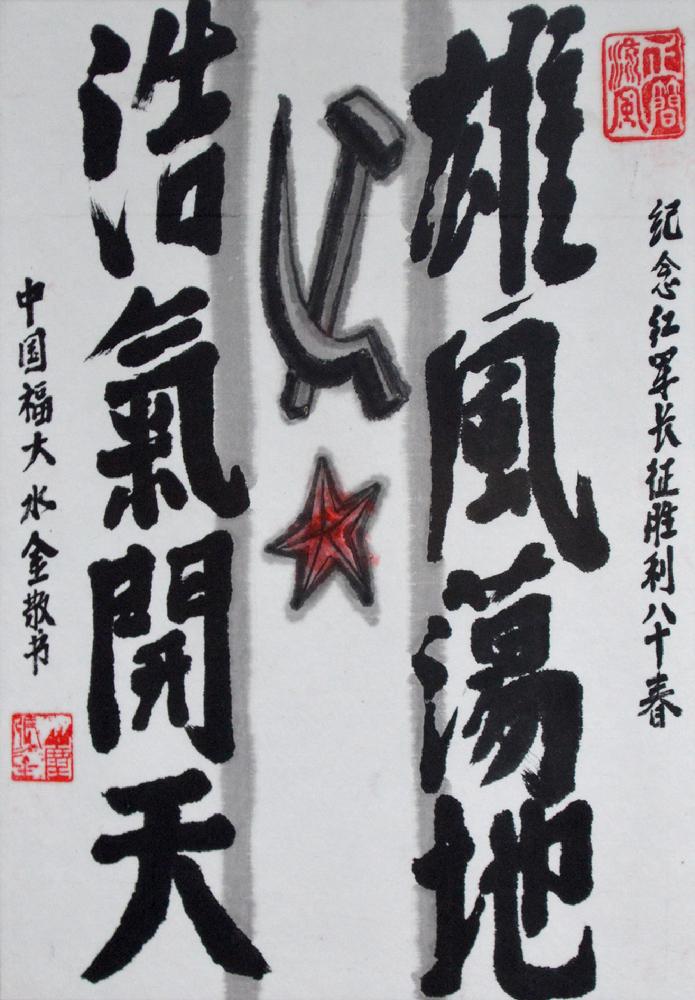 正簡流風
紀念红军长征胜利八十春
雄風蕩地
浩氣開天
中国福大水金敬书